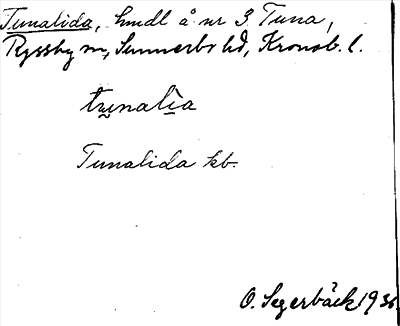 Tunalida, hmdl å nr 3 Tuna,
Ryssby sn, Sunnerbo hd, Kronob. l.
tu̬nalìa
Tunalida kb.
O. Segerbäck 1936